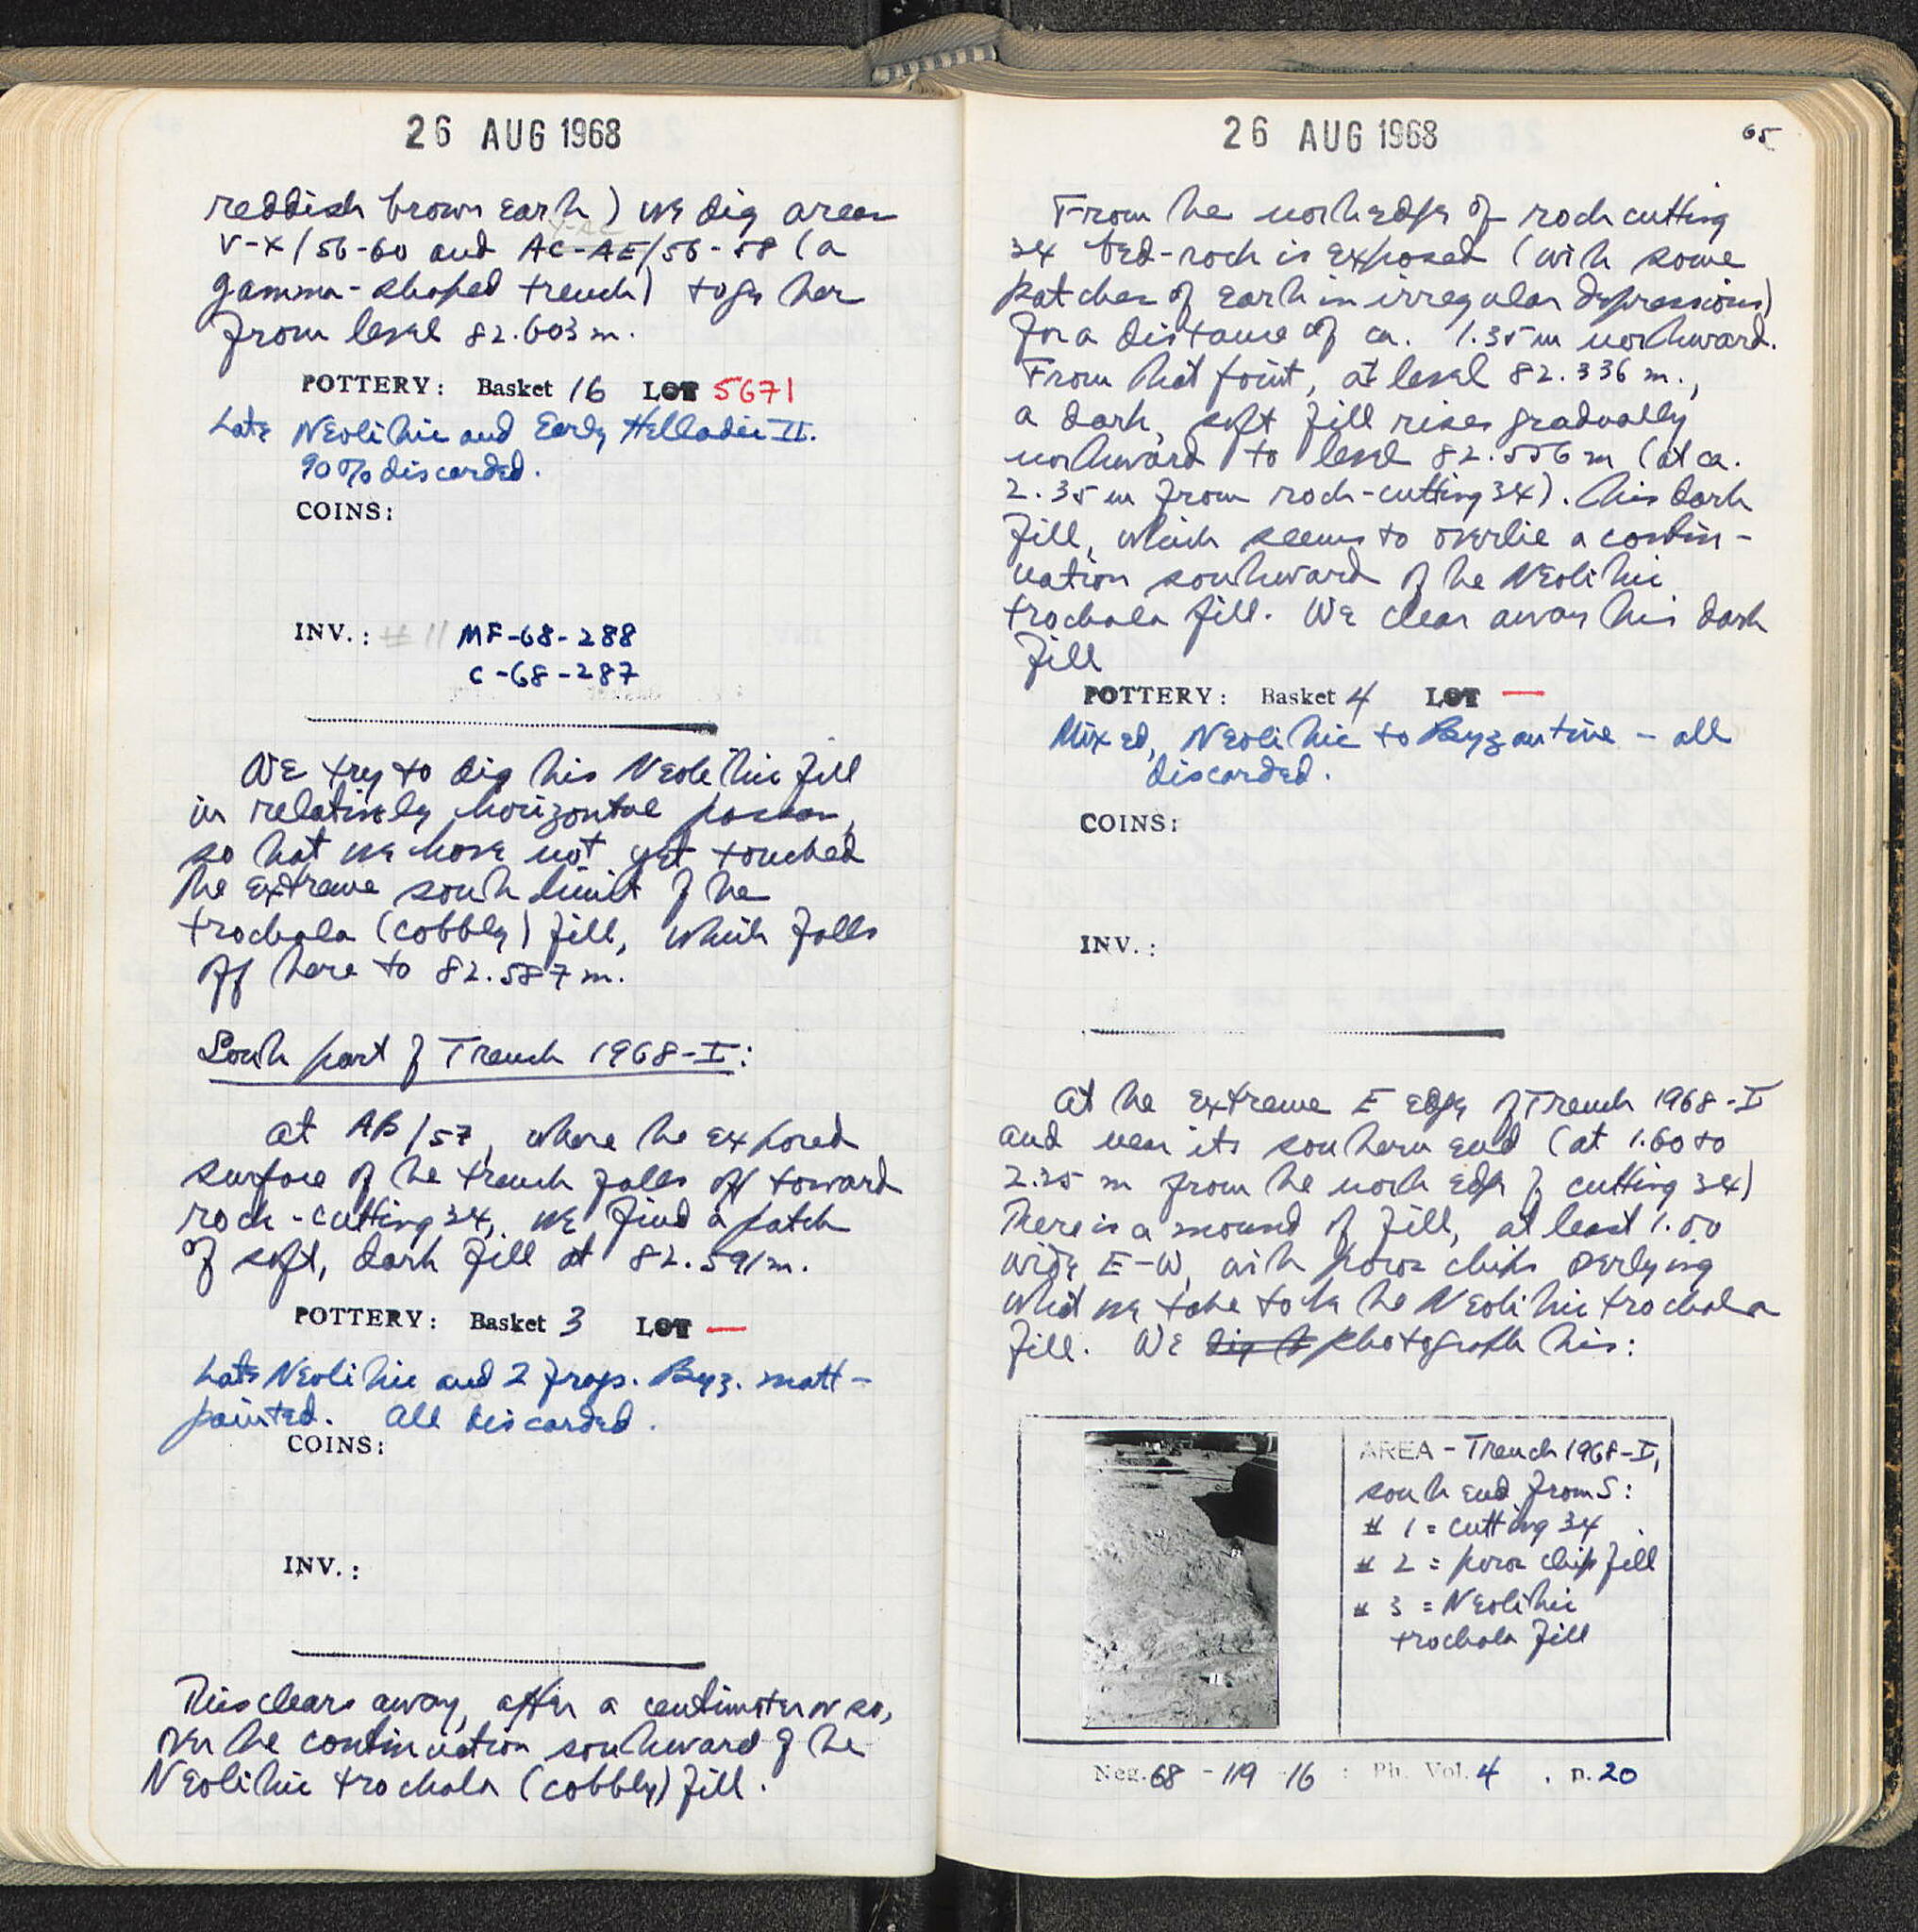 26 AUG 1968
reddish brown earth) we dig areas
V-X/56-60 and AC-AE/56-58 (a
Y-AC
gamma-shaped trench) together
from level 82.603 m.
POTTERY: Basket 16 LOT 5671
Late Neolithic and Early Helladic II.
90% discarded.
COINS:
INV.: # 11 MF-68-288
C-68-287
We try to dig this Neolithic fill
in relatively horizontal passes,
so that we have not yet touched
the extreme south limit of the
trochala (cobbly) fill, which falls
off here to 82.587 m.
South part of Trench 1968-I:
At AB/57, where the exposed
surface of the trench falls off toward
rock-cutting 34, we find a patch
of soft, dark fill at 82.591 m.
POTTERY: Basket 3 LOT —
Late Neolithic and 2 frags. Byz. matt-
painted. All discarded.
COINS:
INV.:
This clears away, after a centimeter or so,
over the continuation southward of the
Neolithic trochala (cobbly) fill.
26 AUG 1968
65
From the north edge of rock cutting
34 bed-rock is exposed (with some
patches of earth in irregular depressions)
for a distance of ca. 1.35 m northward.
From that point, at level 82.336 m.,
a dark, soft fill rises gradually
northward to level 82.556 m (at ca.
2.35 m from rock-cutting 34). This dark
fill, which seems to overlie a contin-
uation southward of the Neolithic
trochala fill. We clear away this dark
fill
POTTERY: Basket 4 LOT —
Mixed, Neolithic to Byzantine - all
discarded.
COINS:
INV.:
At the extreme E edge of Trench 1968-I
and near its southern end (at 1.60 to
2.25 m from the north edge of cutting 34)
There is a mound of fill, at least 1.00
wide E-W, with poros chips overlying
what we take to be the Neolithic trochala
fill. We dig it photograph this:
AREA - Trench 1968-I,
south end from S:
# 1 = cutting 34
# 2 = poros chip fill
# 3 = Neolithic
trochala fill
Neg. 68 - 119 - 16 : Ph. Vol. 4 , p. 20